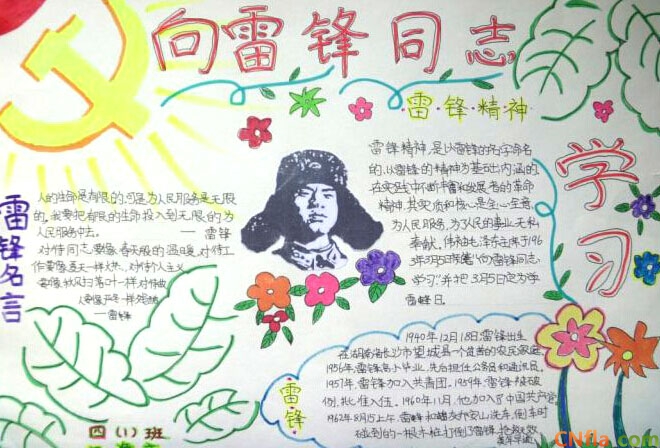 向雷锋同志
学习
雷锋精神
雷锋精神,是以雷锋的名字命名
的,以雷锋的精神为基础内涵的、
在实践中不断丰富和发展着的革命
精神,其实质和核心是全心全意
为人民服务,为了人民的事业无私
奉献。
3月5日
学习”并把3月5日定为学
雷锋日。
雷锋名言
人的生命是有限的,可是为人民服务是无限
的,我要把有限的生命投入到无限的为
人民服务中去。
——雷锋
对待同志要像春天般的温暖,对待工
作要像夏天一样火热,对待个人主义
要像秋风扫落叶一样,对待敌
人要像严冬一样残酷
——雷锋
雷锋
1940年12月18日雷锋出生
在湖南省长沙市望城县一个贫苦的农民家庭,
1956年雷锋高小毕业,先后担任公务员和通讯员。
1957年雷锋加入共青团。1959年雷锋被破
例批准入伍。1960年11月,他加入了中国共产党
1962年8月15日上午,雷锋和
碰到的一根木桩打倒了雷锋,抢救无效
四(1)班
CNfla.com